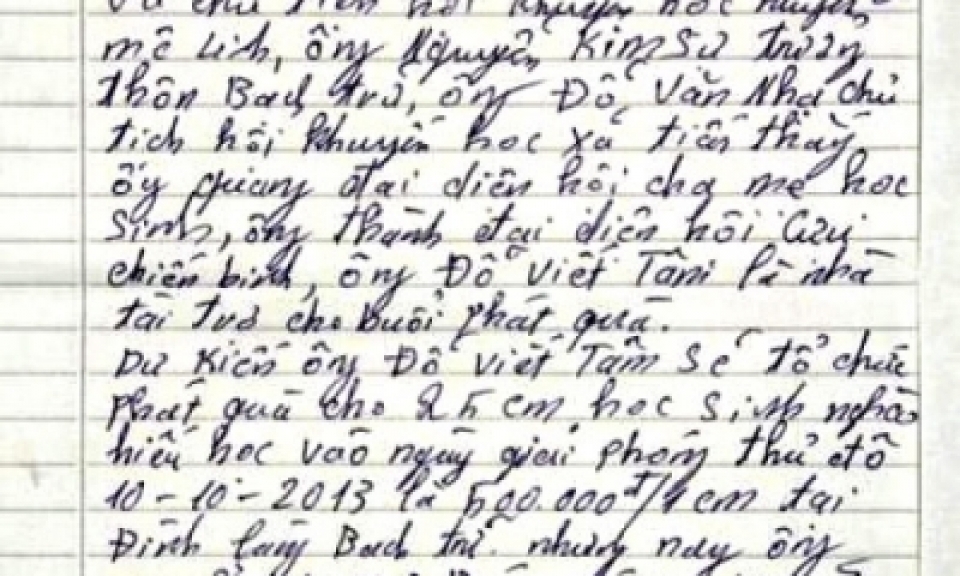 chủ tịch hội khuyến học huyện
mê Linh, ông Nguyễn Kim Sử trưởng
thôn Bạch trữ, ông Đỗ Văn Nha chủ
tịch hội khuyến học xã tiến thắng
ông quang đại diện hội cha mẹ học
sinh, ông thành đại diện hội Cựu
chiến binh, ông Đỗ Viết Tâm là nhà
tài trợ cho buổi phát quà.
Dự Kiến ông Đỗ Viết Tâm sẽ tổ chức
phát quà cho 25 em học sinh nghèo
hiếu học vào ngày giải phóng thủ đô
10-10-2013 là 500.000đ/1em tại
Đình làng Bạch trữ. nhưng nay ông